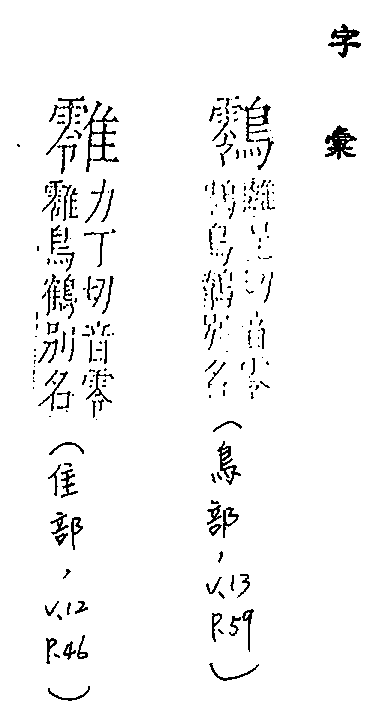 字彙
離呈切音零
鳥鶴別名
(鳥部,
V.13
P.59)
力丁切音零
鳥鶴別名
(隹部,
V.12
P.46)